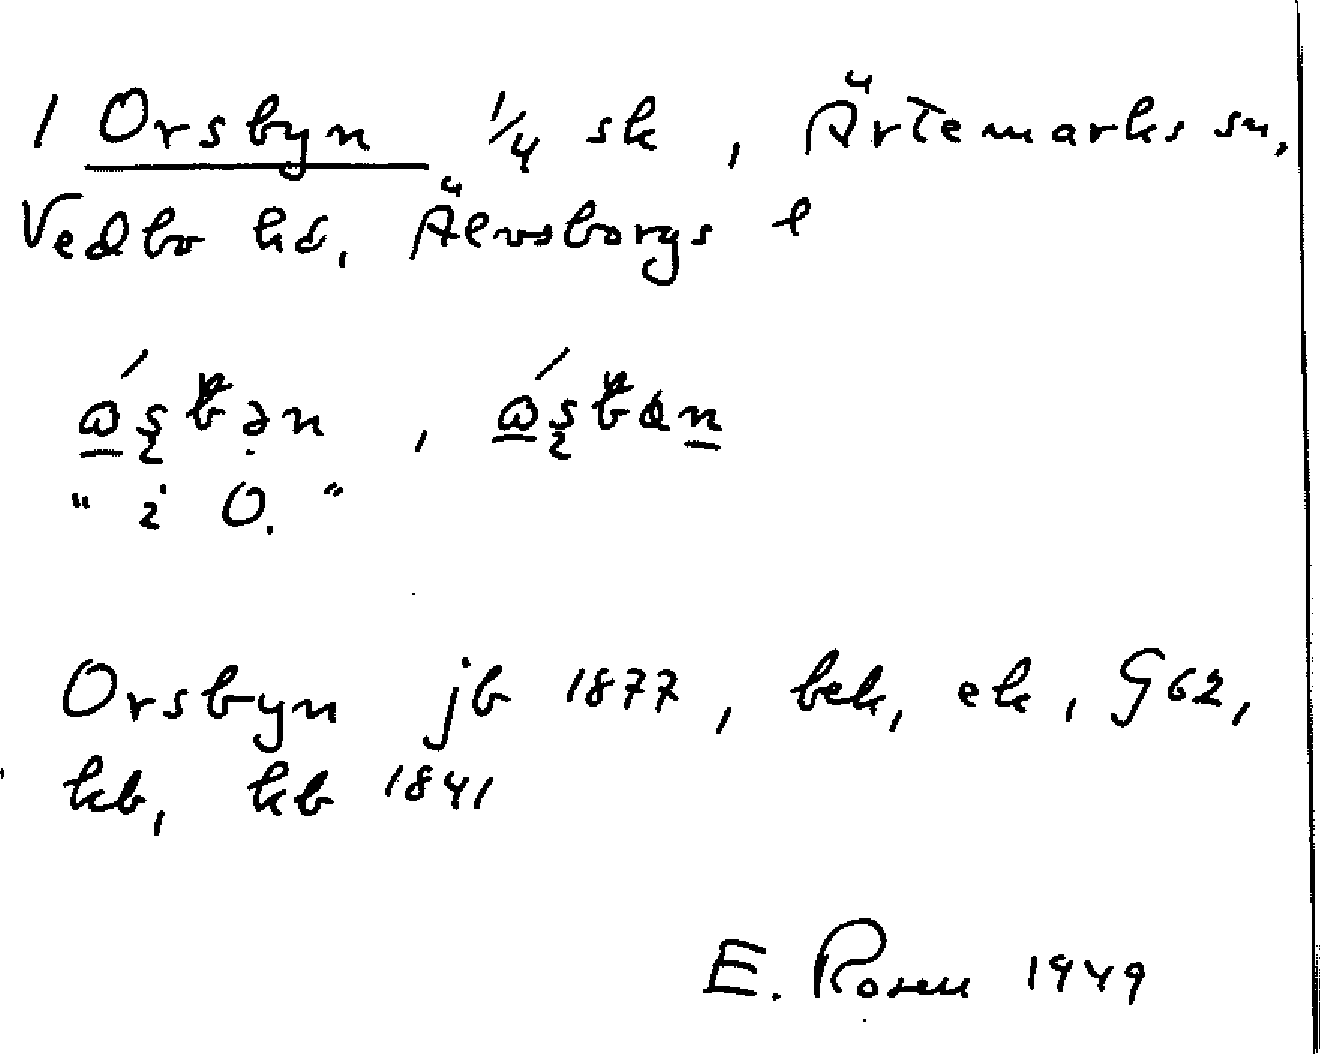 1 Orsbyn 1/4 sk, Ärtemarks sn,
Vedbo hd, Älvsborgs l
" i O. "
Orsbyn jb 1877, bek, ek, G62,
kb, kb 1841
E. Rosen 1949